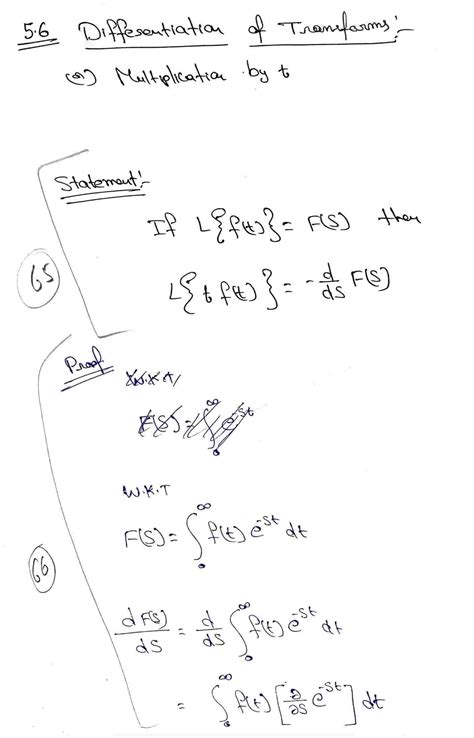 5.6 Differentiation of Transforms:-
(or) Multiplication by t
Statement:-
If L{f(t)} = F(S) then
L{t f(t)} = -d/ds F(S)
65
Proof
W.K.T,
F(S) = ∫₀^∞ e^-st
W.K.T
F(S) = ∫₀^∞ f(t) e^-st dt
66
dF(S)/dS = d/dS ∫₀^∞ f(t) e^-st dt
= ∫₀^∞ f(t) [∂/∂S e^-st] dt